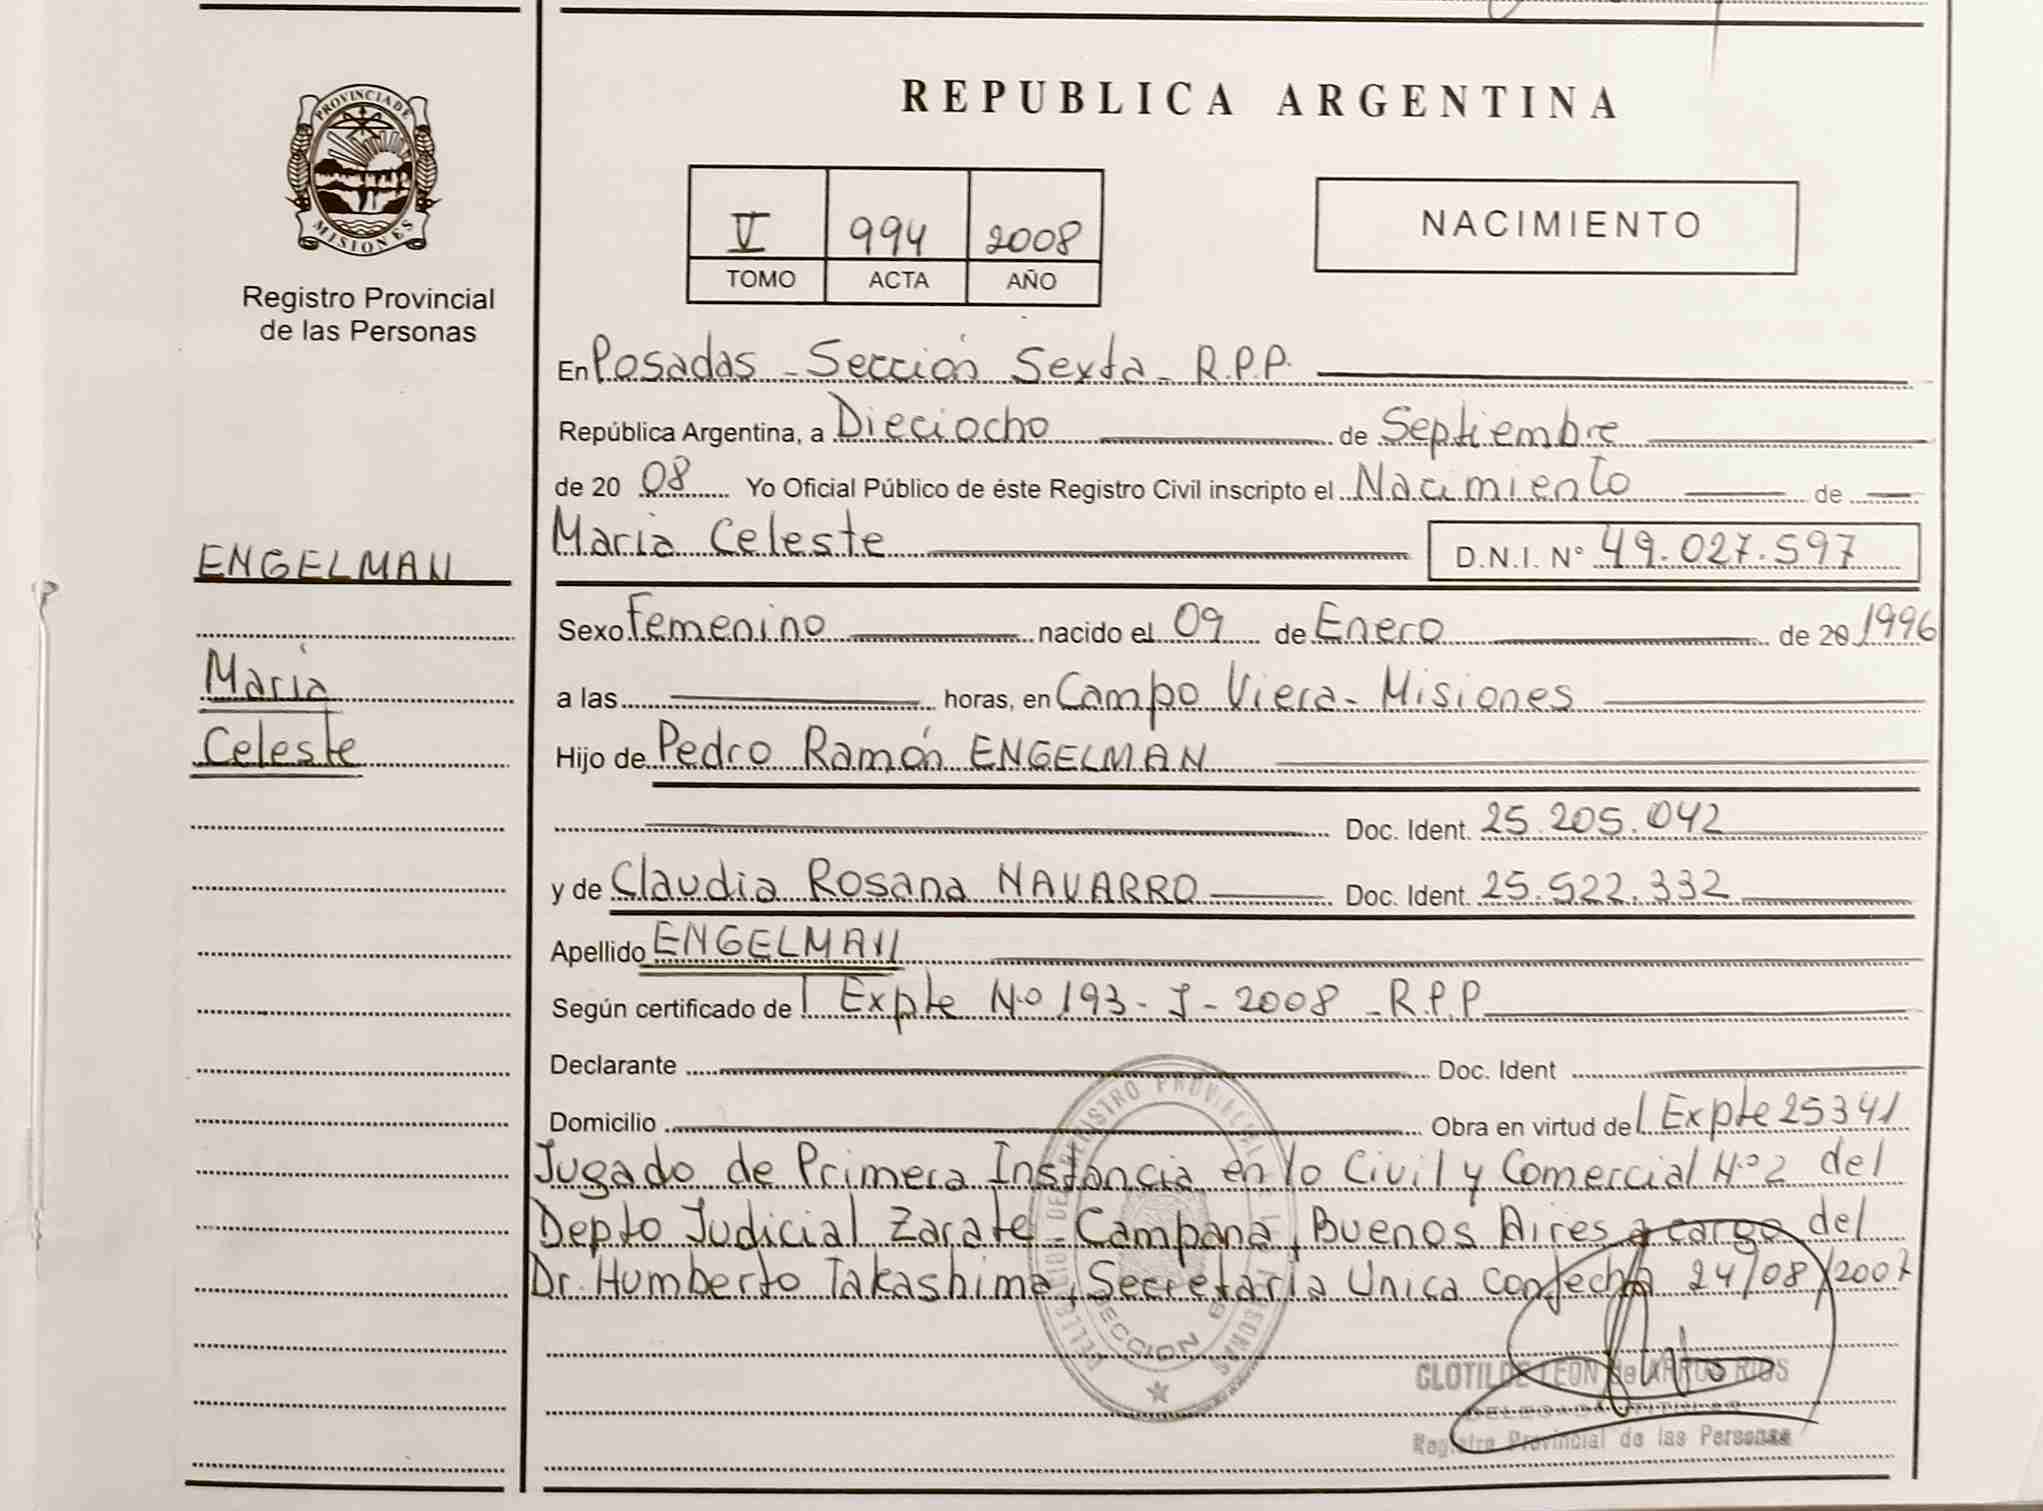 PROVINCIA DE
MISIONES
Registro Provincial
de las Personas
ENGELMAN
María
Celeste
REPUBLICA ARGENTINA
V 994 2008
TOMO ACTA AÑO
NACIMIENTO
En Posadas - Sección Sexta - R.P.P.
República Argentina, a Dieciocho de Septiembre
de 20 08 Yo Oficial Público de éste Registro Civil inscripto el Nacimiento de
Maria Celeste D.N.I. N° 49.027.597
Sexo Femenino nacido el 09 de Enero de 20 1996
a las horas, en Campo Viera - Misiones
Hijo de Pedro Ramón ENGELMAN
Doc. Ident. 25.205.042
y de Claudia Rosana NAVARRO Doc. Ident. 25.522.332
Apellido ENGELMAN
Según certificado de l Expte N.o 193 - J - 2008 - R.P.P
Declarante Doc. Ident
Domicilio Obra en virtud de l Expte 25341
Jugado de Primera Instancia en lo Civil y Comercial N.o 2 del
Depto Judicial Zarate - Campana, Buenos Aires a cargo del
Dr. Humberto Takashima, Secretaría Unica con fecha 24/08/2007
SECCION 6
CLOTILDE LEON de ARRUS RIOS
DELEGADA TITULAR
Registro Provincial de las Personas